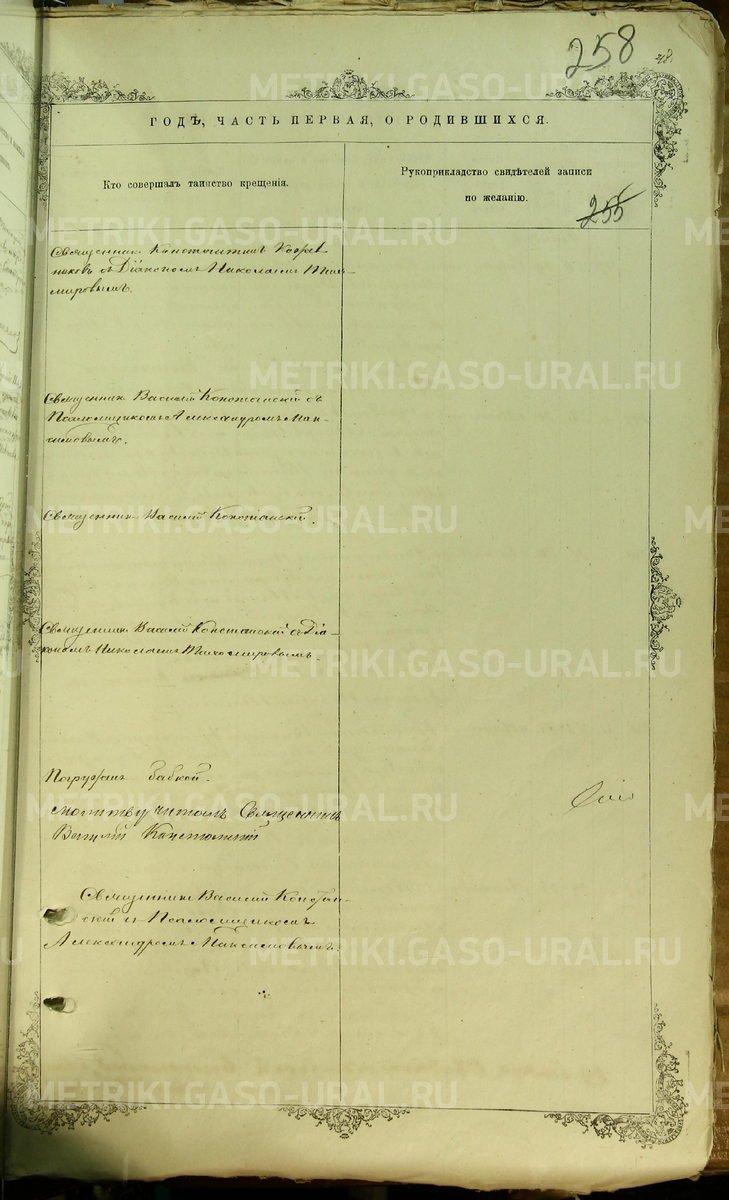 258
48.
ГОДЪ, ЧАСТЬ ПЕРВАЯ, О РОДИВШИХСЯ.
Кто совершалъ таинство крещенія.
Рукоприкладство свидѣтелей записи
по желанію.
255
Священник Константинъ
никовъ съ Діакономъ Николаемъ Тихо-
мировымъ.
Священник Василій Констанскій съ
Псаломщикомъ Александромъ Мак-
симовымъ.
Священник Василій Констанскій.
Священник Василій Констанскій съ Діа-
кономъ Николаемъ Тихомировымъ.
Погружен бабкой.
молитву читалъ Священникъ
Василій Констанскій
Священник Василій Констан-
скій и Псаломщикомъ
Александромъ Максимовымъ.
METRIKI.GASO-URAL.RU